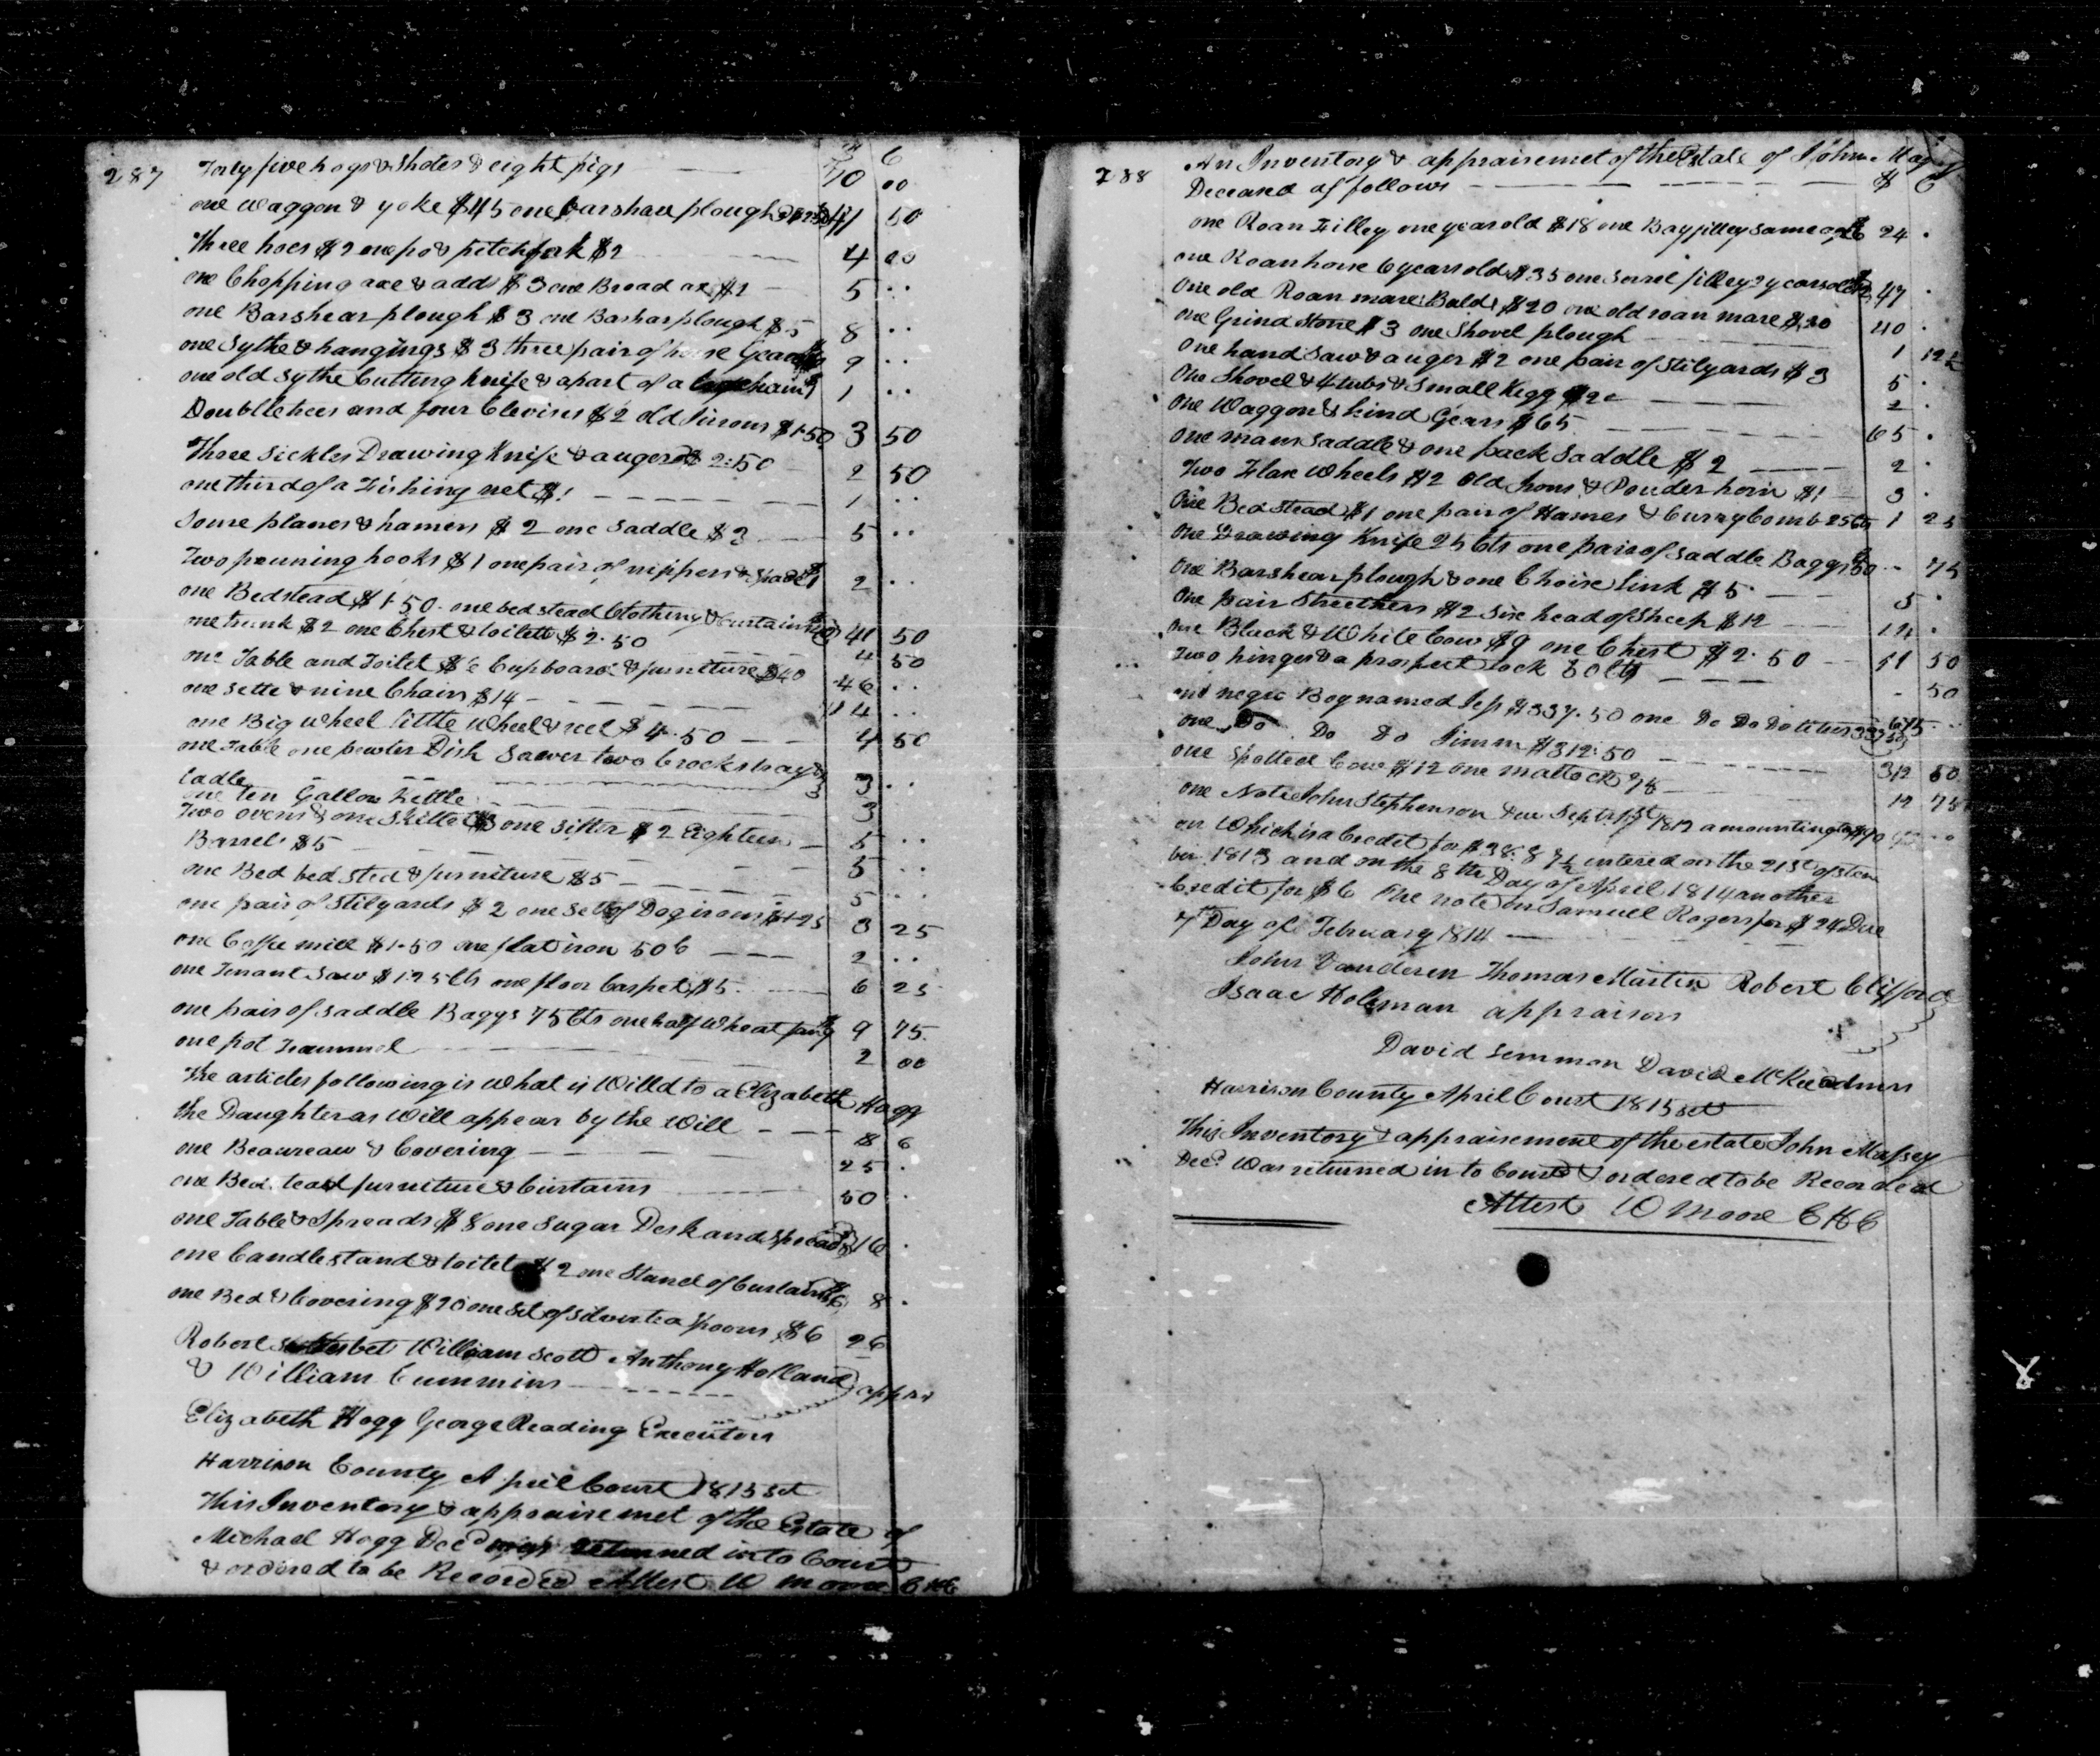 287
Forty five hogs & Shotes & eight pigs 70 00
one Waggon & yoke $45 one barshare plough 50
Three hoes $2 one po & pitchfork $2 4 00
one Chopping axe & adds $3 one Broad ax $2 5 ..
one Barshear plough $3 one Barshar plough $5 8 ..
one Sythe & hangings $3 three pair of horse Gears 9 ..
one old Sythe Cutting knife & apart of a 1 ..
Doubltetrees and four Clevises $2 old Irons $1.50 3 50
Three Sickles Drawing Knife & auger $2:50 2 50
one third of a Fishing net $1 1 ..
Some planes & hamers $2 one Saddle $3 5 ..
Two pruning hooks $1 one pair of nippers & Spade $1 2 ..
one Bedstead $1.50. one bed stead Clothing & Curtains 41 50
one trunk $2 one Chest & toilett $2.50 4 50
one Table and Toilet $6 Cupboard & furniture $40 46 ..
one Sette & nine Chairs $14 14 ..
one Big Wheel little Wheel & reel $4.50 4 50
one Table one pewter Dish Sawer two Crocks tray &
ladle 3 ..
one ten Gallon Kettle 3
Two ovens & one Skillet $3 one Sifter $2 Eighteen 5 ..
Barrels $5 5 ..
one Bed bed sted & furniture $5 5 ..
one pair of Stilyards $2 one Set of Dogirons $1.25 3 25
one Coffee mill $1.50 one flat iron 50 C 2 ..
one Tenant Saw $1.25 Cts one floor Carpet $5 6 25
one pair of Saddle Baggs 75 Cts one half Wheat fan $9 9 75
one pot trammel 2 00
The articles following is What is Willd to a Elizabeth Hogg
the Daughter as Will appear by the Will $ C
one Beaureau & Covering 25 .
one Bed tead furniture & Curtains 50 .
one Table & Spreads $8 one Sugar Desk and Spread 16 .
one Candlestand & toilet $2 one Stand of Curtains $6 8 .
one Bed & Covering $20 one Set of Silver tea Spoons $6 26
Robert William Scott Anthony Holland
& William Cummins apprs
Elizabeth Hogg George Reading Executors
Harrison County April Court 1815 Sct
This Inventory & appraisemet of the Estate of
Michael Hogg Decd was returned into Court
& ordered to be Recorded Attest W Moore CHC
288
An Inventory & appraisemet of the Estate of John Massey
Deceased as follows $ C
one Roan Filley one year old $18 one Bay filley same age $6 24 .
one Roan horse 6 years old $35 one Sorrel filley 2 years old $12 47 .
One old Roan mare Bald $20 one old roan mare $20 40 .
one Grind Stone $3 one Shovel plough 1 12½
One hand Saw & auger $2 one pair of Stilyards $3 5 .
One Shovel & 4 tubs & Small Kegg $2 2 .
One Waggon & hind Gears $65 65 .
one mans Saddle & one pack Saddle $2 2 .
Two Flax Wheels $2 Old Irons & Powder horn $1 3 .
One Bed Stead $1 one pair of Hames & Curry Comb 25 Cts 1 25
One Drawing Knife 25 Cts one pair of Saddle Baggs 50 .. 75
One Barshear plough & one Choise link $5 5 .
One pair Stretchers $2 Six head of Sheep $12 14 .
One Black & White Cow $9 one Chest $2.50 11 50
Two hinges & a prospect Lock 50 Cts . 50
one negro Boy named Jep $337.50 one Do Do Do 337.50 675 ..
one Do Do Do Jimm $312:50 312 50
one Spotted Cow $12 one mattock 75 12 75
one Note John Stephenson due Septr 1st 1812 amounting to $90
on Which is a Credit for $38.87½ entered on the 21st of
ber 1813 and on the 8th Day of April 1814 another
Credit for $6 One note on Samuel Rogers for $24 Due
7th Day of February 1814
John Vanderen Thomas Martin Robert Clifford
Isaac Holeman appraisors
David Lemmon David McKee Admrs
Harrison County April Court 1815 Sct
This Inventory & appraisement of the estate John Massey
Decd Was returned in to Court & ordered to be Recorded
Attest W Moore CHC